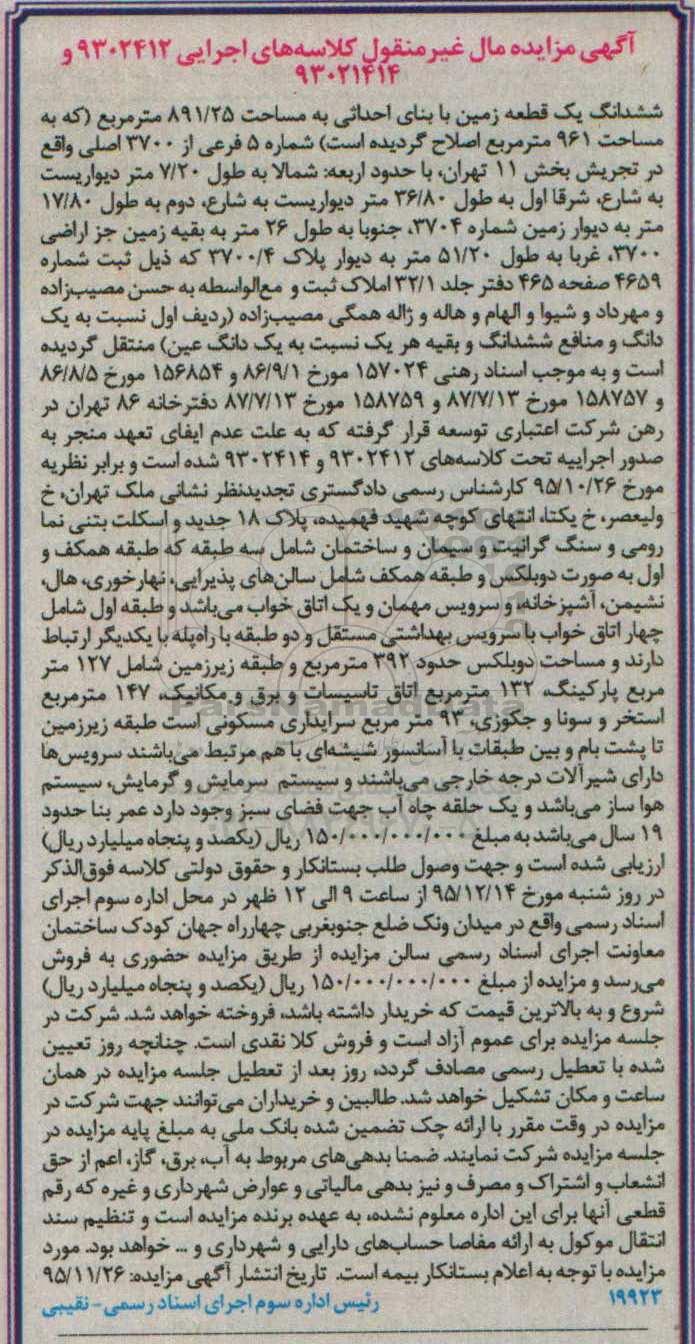 آگهی مزایده مال غیرمنقول کلاسه‌های اجرایی ۹۳۰۲۴۱۲ و
۹۳۰۲۱۴۱۴
ششدانگ یک قطعه زمین با بنای احداثی به مساحت ۸۹۱/۲۵ مترمربع (که به
مساحت ۹۶۱ مترمربع اصلاح گردیده است) شماره ۵ فرعی از ۳۷۰۰ اصلی واقع
در تجریش بخش ۱۱ تهران، با حدود اربعه: شمالا به طول ۷/۲۰ متر دیواریست
به شارع، شرقا اول به طول ۳۶/۸۰ متر دیواریست به شارع، دوم به طول ۱۷/۸۰
متر به دیوار زمین شماره ۳۷۰۴، جنوبا به طول ۲۶ متر به بقیه زمین جز اراضی
۳۷۰۰، غربا به طول ۵۱/۲۰ متر به دیوار پلاک ۳۷۰۰/۴ که ذیل ثبت شماره
۴۶۵۹ صفحه ۴۶۵ دفتر جلد ۳۲/۱ املاک ثبت و مع‌الواسطه به حسن مصیب‌زاده
و مهرداد و شیوا و الهام و هاله و ژاله همگی مصیب‌زاده (ردیف اول نسبت به یک
دانگ و منافع ششدانگ و بقیه هر یک نسبت به یک دانگ عین) منتقل گردیده
است و به موجب اسناد رهنی ۱۵۷۰۲۴ مورخ ۸۶/۹/۱ و ۱۵۶۸۵۴ مورخ ۸۶/۸/۵
و ۱۵۸۷۵۷ مورخ ۸۷/۷/۱۳ و ۱۵۸۷۵۹ مورخ ۸۷/۷/۱۳ دفترخانه ۸۶ تهران در
رهن شرکت اعتباری توسعه قرار گرفته که به علت عدم ایفای تعهد منجر به
صدور اجراییه تحت کلاسه‌های ۹۳۰۲۴۱۲ و ۹۳۰۲۴۱۴ شده است و برابر نظریه
مورخ ۹۵/۱۰/۲۶ کارشناس رسمی دادگستری تجدیدنظر نشانی ملک تهران، خ
ولیعصر، خ یکتا، انتهای کوچه شهید فهمیده، پلاک ۱۸ جدید و اسکلت بتنی نما
رومی و سنگ گرانیت و سیمان و ساختمان شامل سه طبقه که طبقه همکف و
اول به صورت دوبلکس و طبقه همکف شامل سالن‌های پذیرایی، نهارخوری، هال،
نشیمن، آشپزخانه، و سرویس مهمان و یک اتاق خواب می‌باشد و طبقه اول شامل
چهار اتاق خواب با سرویس بهداشتی مستقل و دو طبقه با راه‌پله با یکدیگر ارتباط
دارند و مساحت دوبلکس حدود ۳۹۲ مترمربع و طبقه زیرزمین شامل ۱۲۷ متر
مربع پارکینگ، ۱۳۲ مترمربع اتاق تاسیسات و برق و مکانیک، ۱۴۷ مترمربع
استخر و سونا و جکوزی، ۹۳ متر مربع سرایداری مسکونی است طبقه زیرزمین
تا پشت بام و بین طبقات با آسانسور شیشه‌ای با هم مرتبط می‌باشند سرویس‌ها
دارای شیرآلات درجه خارجی می‌باشند و سیستم سرمایش و گرمایش، سیستم
هوا ساز می‌باشد و یک حلقه چاه آب جهت فضای سبز وجود دارد عمر بنا حدود
۱۹ سال می‌باشد به مبلغ ۱۵۰/۰۰۰/۰۰۰/۰۰۰ ریال (یکصد و پنجاه میلیارد ریال)
ارزیابی شده است و جهت وصول طلب بستانکار و حقوق دولتی کلاسه فوق‌الذکر
در روز شنبه مورخ ۹۵/۱۲/۱۴ از ساعت ۹ الی ۱۲ ظهر در محل اداره سوم اجرای
اسناد رسمی واقع در میدان ونک ضلع جنوبغربی چهارراه جهان کودک ساختمان
معاونت اجرای اسناد رسمی سالن مزایده از طریق مزایده حضوری به فروش
می‌رسد و مزایده از مبلغ ۱۵۰/۰۰۰/۰۰۰/۰۰۰ ریال (یکصد و پنجاه میلیارد ریال)
شروع و به بالاترین قیمت که خریدار داشته باشد، فروخته خواهد شد. شرکت در
جلسه مزایده برای عموم آزاد است و فروش کلا نقدی است. چنانچه روز تعیین
شده با تعطیل رسمی مصادف گردد، روز بعد از تعطیل جلسه مزایده در همان
ساعت و مکان تشکیل خواهد شد. طالبین و خریداران می‌توانند جهت شرکت در
مزایده در وقت مقرر با ارائه چک تضمین شده بانک ملی به مبلغ پایه مزایده در
جلسه مزایده شرکت نمایند. ضمنا بدهی‌های مربوط به آب، برق، گاز، اعم از حق
انشعاب و اشتراک و مصرف و نیز بدهی مالیاتی و عوارض شهرداری و غیره که رقم
قطعی آنها برای این اداره معلوم نشده، به عهده برنده مزایده است و تنظیم سند
انتقال موکول به ارائه مفاصا حساب‌های دارایی و شهرداری و ... خواهد بود. مورد
مزایده با توجه به اعلام بستانکار بیمه است. تاریخ انتشار آگهی مزایده: ۹۵/۱۱/۲۶
۱۹۹۲۳ رئیس اداره سوم اجرای اسناد رسمی- نقیبی